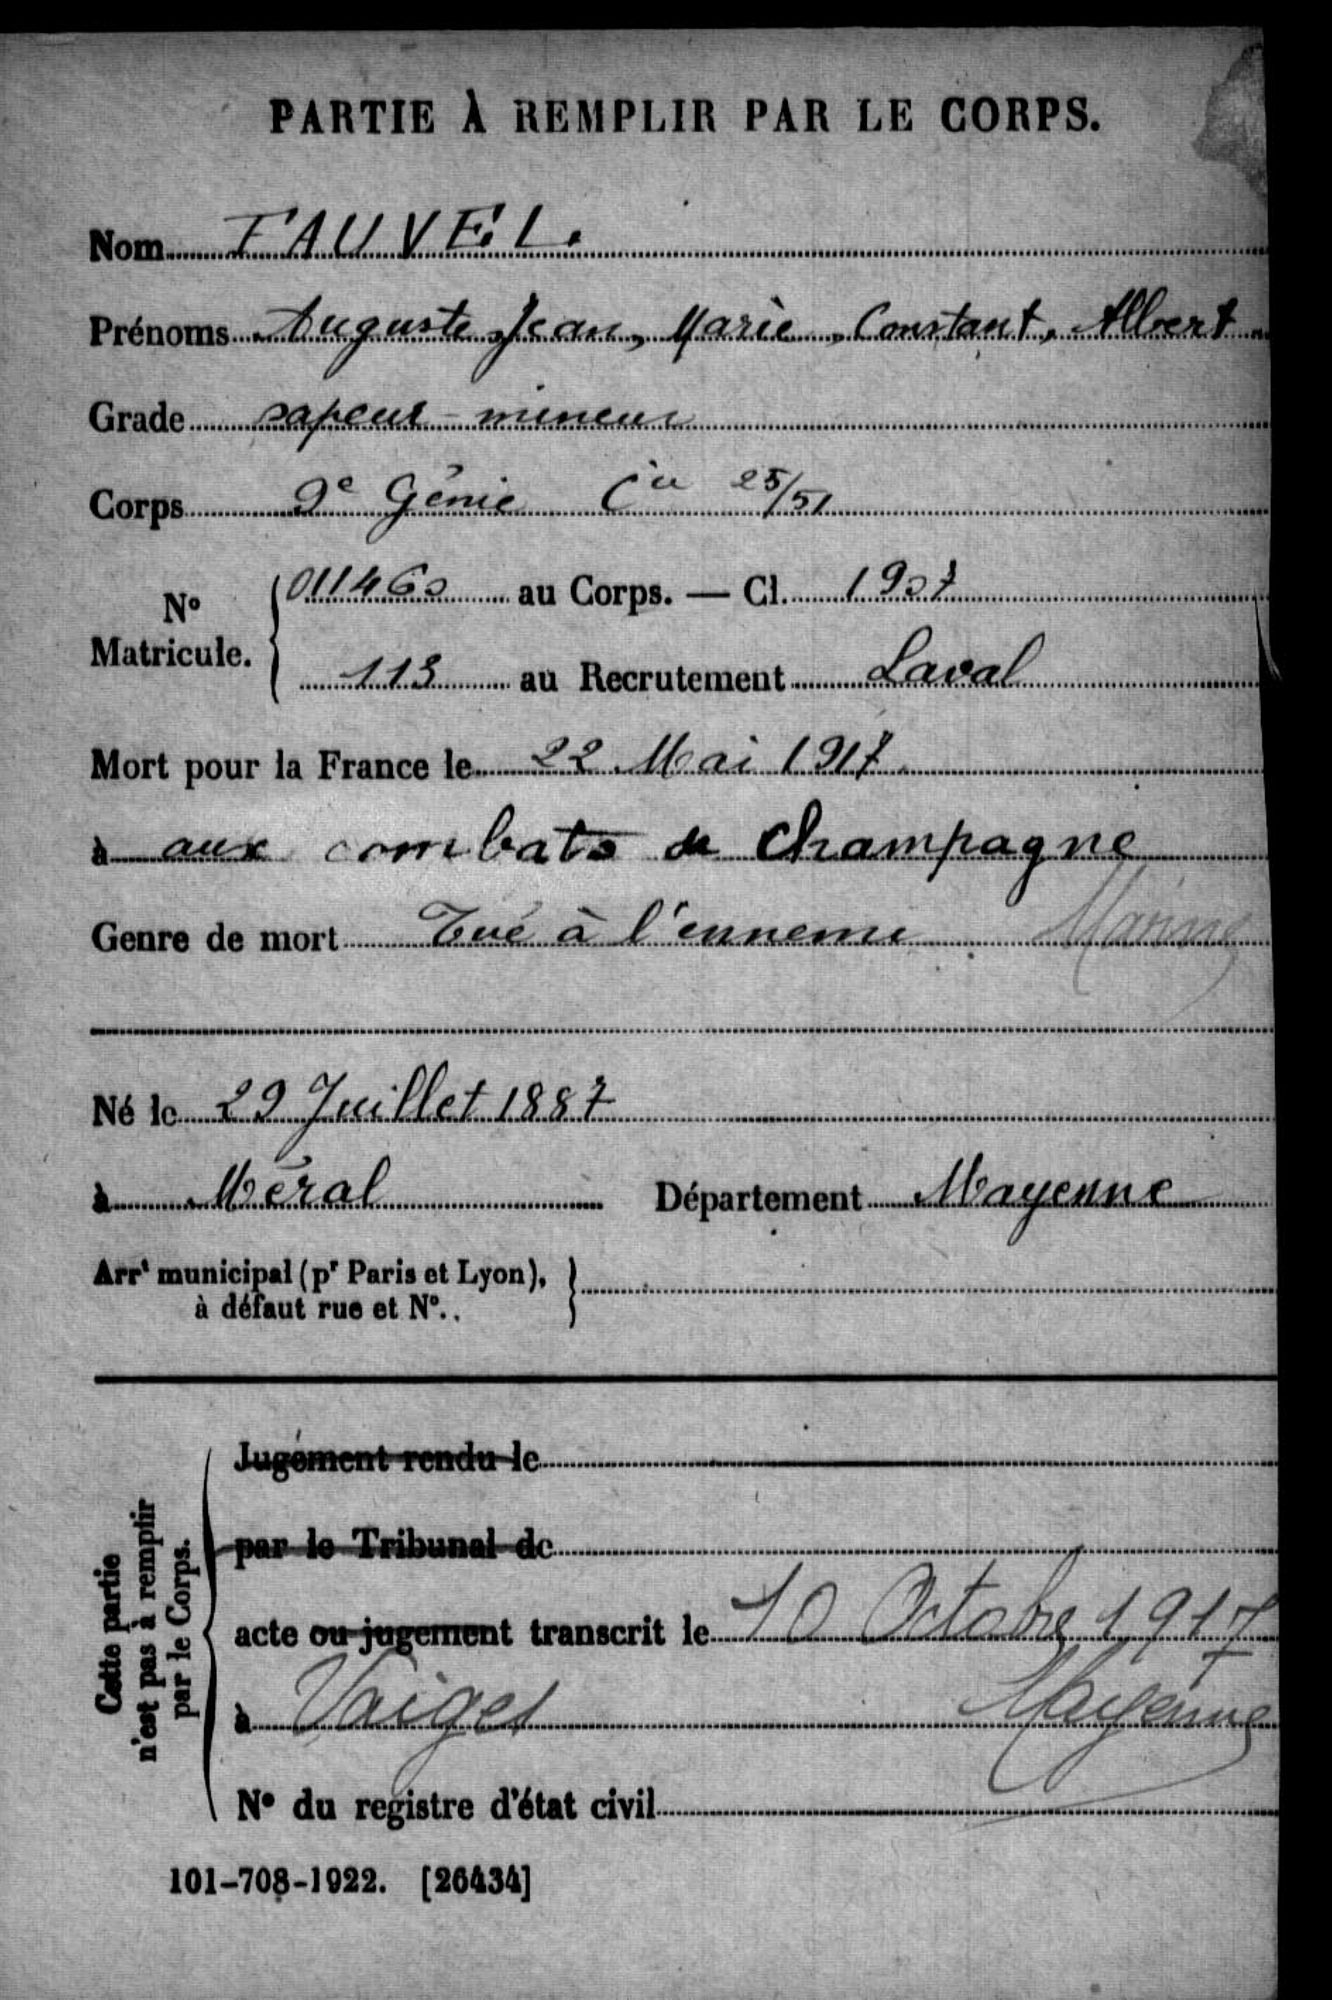 PARTIE À REMPLIR PAR LE CORPS.
Nom FAUVEL.
Prénoms Auguste, Jean, Marie, Constant, Albert
Grade sapeur-mineur
Corps 9e Génie Cie 25/51
N° Matricule. 011460 au Corps. — Cl. 1907
113 au Recrutement Laval
Mort pour la France le 22 Mai 1917
à aux combats de Champagne
Genre de mort Tué à l'ennemi Marne
Né le 29 Juillet 1887
à Méral Département Mayenne
Arrt municipal (pr Paris et Lyon),
à défaut rue et N°.
Cette partie
n'est pas à remplir
par le Corps.
Jugement rendu le
par le Tribunal de
acte ou jugement transcrit le 10 Octobre 1917
à Vaiges Mayenne
N° du registre d'état civil
101-708-1922. [26434]